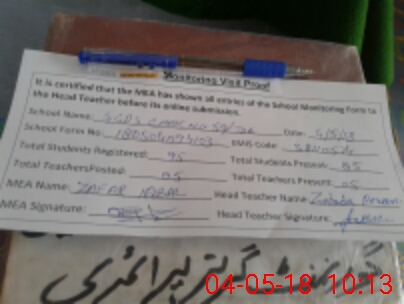 Monitoring Visit Proof
It is certified that the MEA has shown all entries of the School Monitoring Form to
the Head Teacher before its online submission.
School Name: Date:
School Form No: EMIS Code:
Total Students Registered: 95 Total Students Present: 85
Total Teachers Posted: 05 Total Teachers Present: 05
MEA Name: ZAFAR IQBAL Head Teacher Name:
MEA Signature: Head Teacher Signature:
گورنمنٹ گرلز پرائمری
04-05-18 10:13